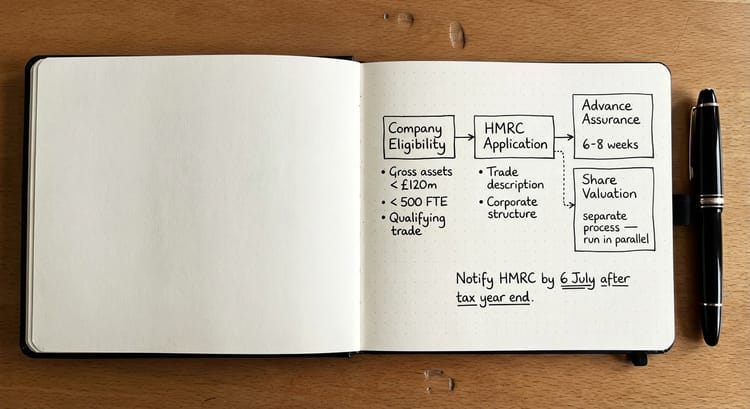 Company
Eligibility
• Gross assets
< £120m
• < 500 FTE
• Qualifying
trade
HMRC
Application
• Trade
description
• Corporate
structure
Advance
Assurance
6-8 weeks
Share
Valuation
separate
process —
run in parallel
Notify HMRC by 6 July after
tax year end.